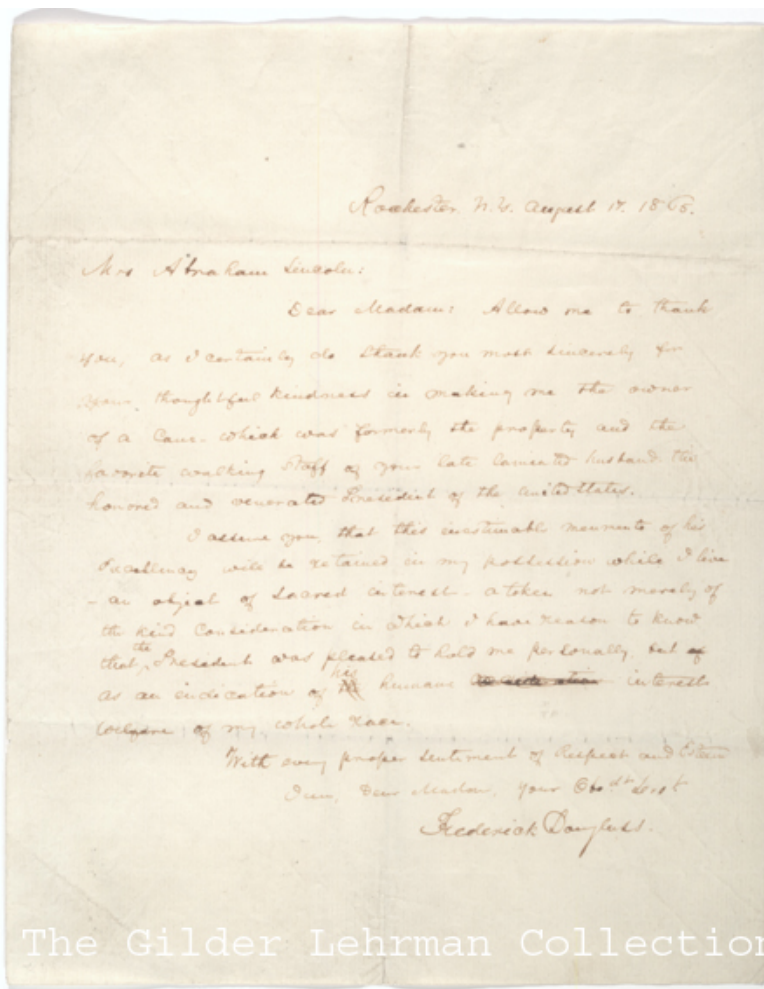 Rochester. N.Y. August 17. 1865.
Mrs Abraham Lincoln:
Dear Madam: Allow me to thank
you, as I certainly do thank you most sincerely for
your thoughtful kindness in making me the owner
of a Cane- which was formerly the property and the
favorite walking staff of your late lamented husband the
honored and venerated President of the United States.
I assure you, that this inestimable memento of his
Excellency will be retained in my possession while I live
- an object of sacred interest - a token not merely of
the kind Consideration in which I have reason to know
that the President was pleased to hold me personally, but as
as an indication of his humane interest
welfare of my whole race.
With every proper sentiment of Respect and Esteem
I am, Dear Madam, your Obdt Servt
Frederick Douglass.
The Gilder Lehrman Collection